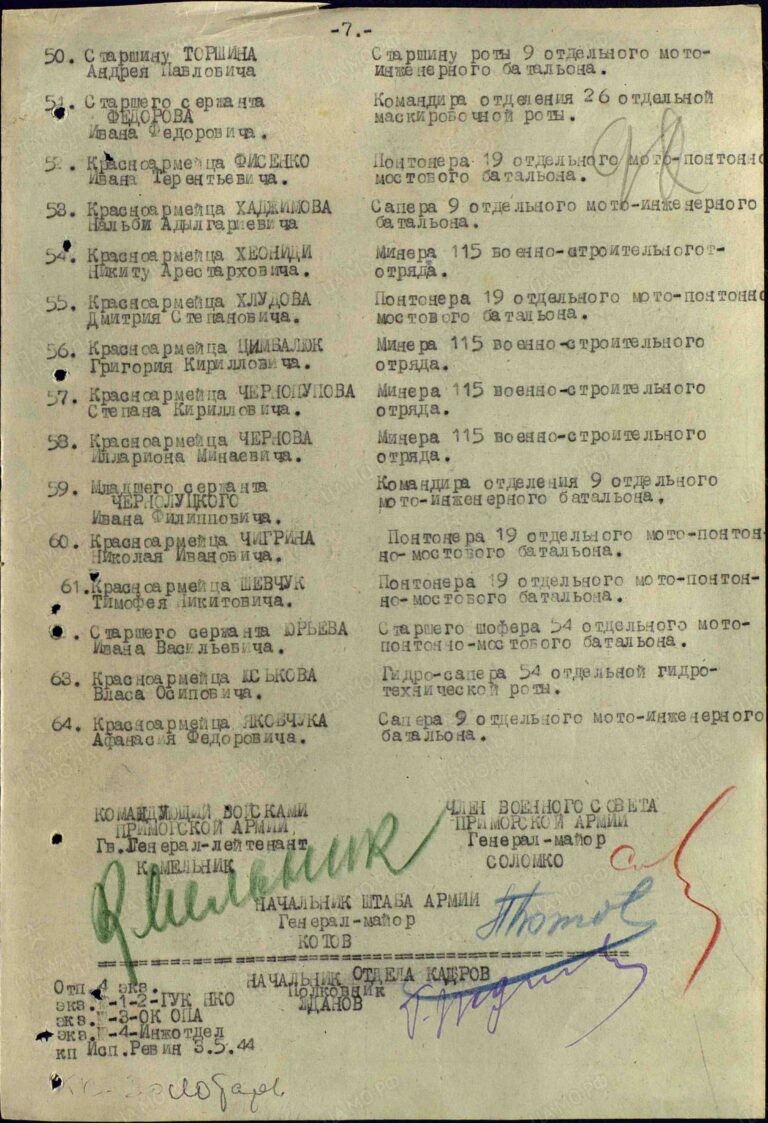 -7.-
50. Старшину ТОРШИНА Старшину роты 9 отдельного мото-
Андрея Павловича инженерного батальона.
51. Старшего сержанта Командира отделения 26 отдельной
ФЕДОРОВА маскировочной роты.
Ивана Федоровича.
52. Красноармейца ФИСЕНКО Понтонера 19 отдельного мото-понтонно
Ивана Терентьевича. мостового батальона.
53. Красноармейца ХАДЖИМОВА Сапера 9 отдельного мото-инженерного
Нальби Адылгариевича батальона.
54. Красноармейца ХЕОНИДИ Минера 115 военно-строительногот-
Никиту Арестарховича. отряда.
55. Красноармейца ХЛУДОВА Понтонера 19 отдельного мото-понтонно
Дмитрия Степановича. мостового батальона.
56. Красноармейца ЦИМБАЛЮК Минера 115 военно-строительного
Григория Кирилловича. отряда.
57. Красноармейца ЧЕРНОПУПОВА Минера 115 военно-строительного
Степана Кирилловича. отряда.
58. Красноармейца ЧЕРНОВА Минера 115 военно-строительного
Иллариона Минаевича. отряда.
59. Младшего сержанта Командира отделения 9 отдельного
ЧЕРНОЛУЦКОГО мото-инженерного батальона.
Ивана Филипповича.
60. Красноармейца ЧИГРИНА Понтонера 19 отдельного мото-понтон-
Николая Ивановича. но-мостового батальона.
61. Красноармейца ШЕВЧУК Понтонера 19 отдельного мото-понтон-
Тимофея Никитовича. но-мостового батальона.
Старшего сержанта ЮРЬЕВА Старшего шофера 54 отдельного мото-
Ивана Васильевича. понтонно-мостового батальона.
63. Красноармейца ЮСЬКОВА Гидро-сапера 54 отдельной гидро-
Власа Осиповича. технической роты.
64. Красноармейца ЯКОВЧУКА Сапера 9 отдельного мото-инженерного
Афанасия Федоровича. батальона.
КОМАНДУЮЩИЙ ВОЙСКАМИ ЧЛЕН ВОЕННОГО СОВЕТА
ПРИМОРСКОЙ АРМИИ, ПРИМОРСКОЙ АРМИИ
Гв.Генерал-лейтенант Генерал-майор
К.МЕЛЬНИК СОЛОМКО
Мельник
НАЧАЛЬНИК ШТАБА АРМИИ
Генерал-майор
КОТОВ
Котов
НАЧАЛЬНИК ОТДЕЛА КАДРОВ
Полковник
ЖДАНОВ
Отп.4 экз.
экз.№-1-2-ГУК НКО
экз.№-3-ОК ОПА
экз.№-4-Инжотдел
кп Исп.Ревин 3.5.44